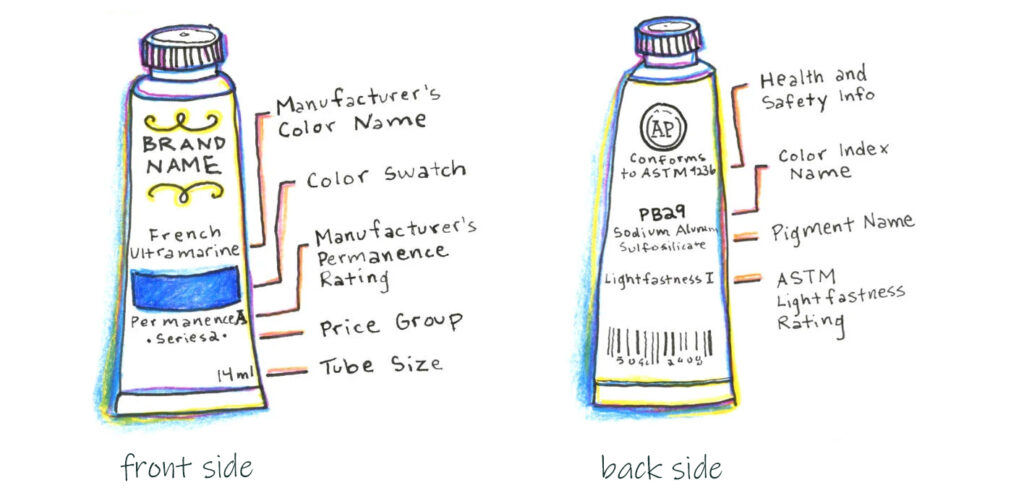 BRAND
NAME
French
Ultramarine
Permanence A
• Series 2 •
14ml
Manufacturer's
Color Name
Color Swatch
Manufacturer's
Permanence
Rating
Price Group
Tube Size
front side
AP
Conforms
to ASTM 4236
PB29
Sodium Alumin
Sulfosilicate
Lightfastness I
Health and
Safety Info
Color Index
Name
Pigment Name
ASTM
Lightfastness
Rating
back side